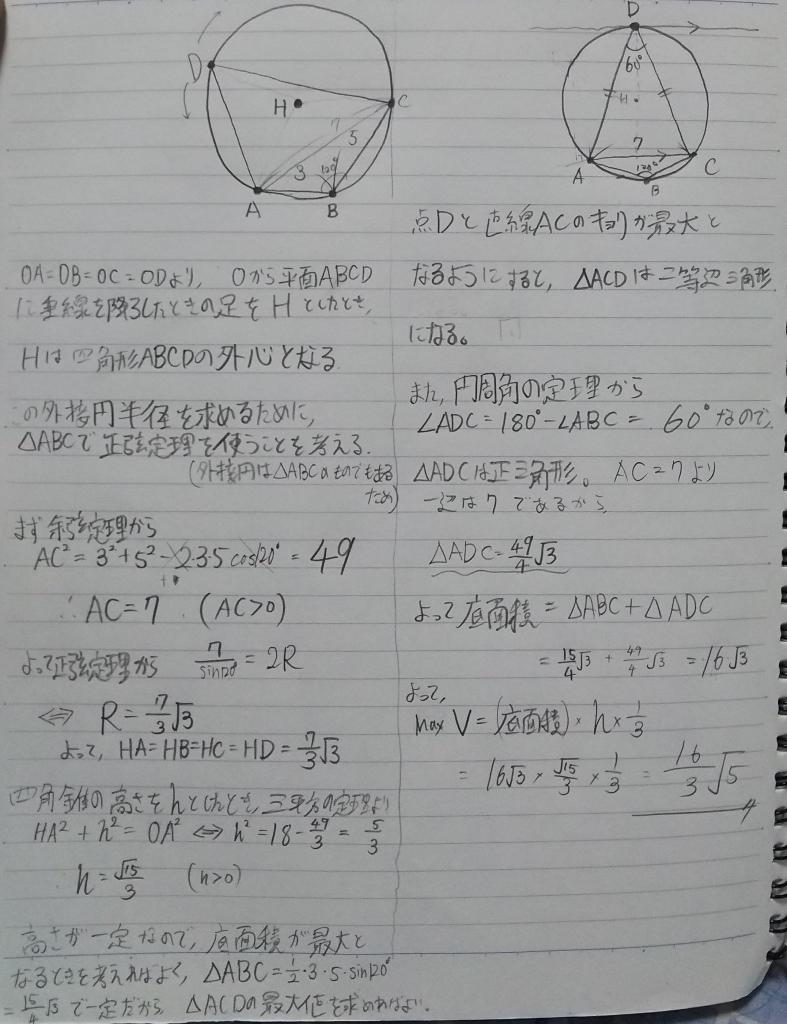 D
H
C
7
5
3
120°
A
B
D
60°
H
7
A
120°
C
B
OA=OB=OC=ODより, Oから平面ABCD
に垂線を降ろしたときの足をHとしたとき,
Hは四角形ABCDの外心となる
この外接円半径を求めるために,
△ABCで正弦定理を使うことを考える.
(外接円は△ABCのものでもある
ため)
まず余弦定理から
AC² = 3²+5²-2·3·5 cos120° = 49
∴ AC=7 (AC>0)
よって正弦定理から 7/sin120° = 2R
⇔ R = 7/3√3
よって, HA=HB=HC=HD= 7/3√3
四角錐の高さをhとしたとき, 三平方の定理より
HA² + h² = OA² ⇔ h² = 18 - 49/3 = 5/3
h = √15/3 (h>0)
高さが一定なので, 底面積が最大と
なるときを考えればよく, △ABC = 1/2·3·5·sin120°
= 15/4√3 で一定だから, △ACDの最大値を求めればよい.
点Dと直線ACのキョリが最大と
なるようにすると, △ACDは二等辺三角形
になる。
また, 円周角の定理から
∠ADC = 180°-∠ABC = 60° なので,
△ADCは正三角形。 AC=7より
一辺は7であるから,
△ADC = 49/4√3
よって底面積 = △ABC + △ADC
= 15/4√3 + 49/4√3 = 16√3
よって,
max V = (底面積) × h × 1/3
= 16√3 × √15/3 × 1/3 = 16/3√5